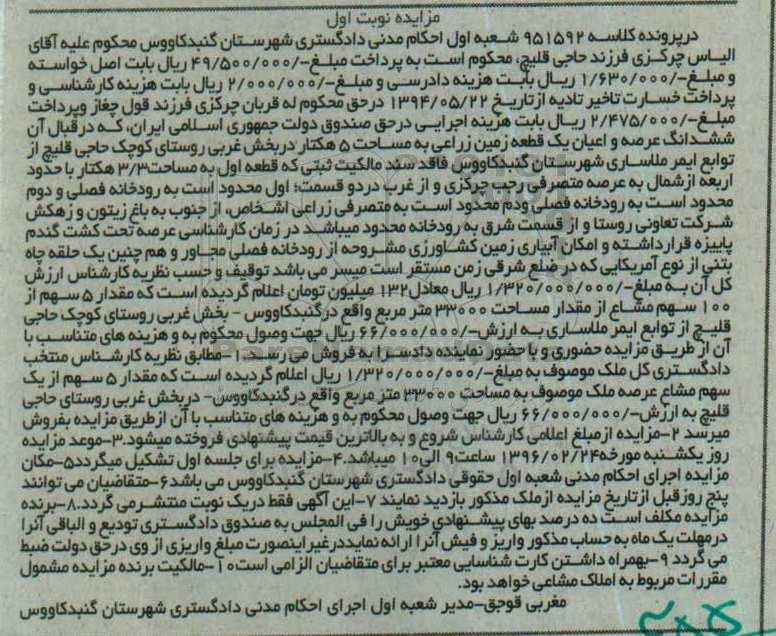 مزایده نوبت اول
درپرونده کلاسه ۹۵۱۵۹۲ شعبه اول احکام مدنی دادگستری شهرستان گنبدکاووس محکوم علیه آقای
الیاس چرکزی فرزند حاجی قلیچ، محکوم است به پرداخت مبلغ-/۴۹/۵۰۰/۰۰۰ ریال بابت اصل خواسته
و مبلغ-/۱/۶۳۰/۰۰۰ ریال بابت هزینه دادرسی و مبلغ-/۲/۰۰۰/۰۰۰ ریال بابت هزینه کارشناسی و
پرداخت خسارت تاخیر تادیه ازتاریخ ۱۳۹۴/۰۵/۲۲ درحق محکوم له قربان چرکزی فرزند قول چغاز وپرداخت
مبلغ-/۲/۴۷۵/۰۰۰ ریال بابت هزینه اجرایی درحق صندوق دولت جمهوری اسلامی ایران، که درقبال آن
ششدانگ عرصه و اعیان یک قطعه زمین زراعی به مساحت ۵ هکتار دربخش غربی روستای کوچک حاجی قلیچ از
توابع ایمر ملاساری شهرستان گنبدکاووس فاقد سند مالکیت ثبتی که قطعه اول به مساحت۳/۳ هکتار با حدود
اربعه ازشمال به عرصه متصرفی رجب چرکزی و از غرب دردو قسمت؛ اول محدود است به رودخانه فصلی و دوم
محدود است به رودخانه فصلی ودم محدود است به متصرفی زراعی اشخاص، از جنوب به باغ زیتون و زهکش
شرکت تعاونی روستا و از قسمت شرق به رودخانه محدود میباشد در زمان کارشناسی عرصه تحت کشت گندم
پاییزه قرارداشته و امکان آبیاری زمین کشاورزی مشروحه از رودخانه فصلی مجاور و هم چنین یک حلقه چاه
بتنی از نوع آمریکایی که در ضلع شرقی زمن مستقر است میسر می باشد توقیف و حسب نظریه کارشناس ارزش
کل آن به مبلغ-/۱/۳۲۰/۰۰۰/۰۰۰ ریال معادل۱۳۲ میلیون تومان اعلام گردیده است که مقدار ۵ سهم از
۱۰۰ سهم مشاع از مقدار مساحت ۳۳۰۰۰ متر مربع واقع درگنبدکاووس - بخش غربی روستای کوچک حاجی
قلیچ از توابع ایمر ملاساری به ارزش-/۶۶/۰۰۰/۰۰۰ ریال جهت وصول محکوم به و هزینه های متناسب با
آن از طریق مزایده حضوری و باحضور نماینده دادسرا به فروش می رسد.۱-مطابق نظریه کارشناس منتخب
دادگستری کل ملک موصوف به مبلغ-/۱/۳۲۰/۰۰۰/۰۰۰ ریال اعلام گردیده است که مقدار ۵ سهم از یک
سهم مشاع عرصه ملک موصوف به مساحت ۳۳۰۰۰ متر مربع واقع درگنبدکاووس- دربخش غربی روستای حاجی
قلیچ به ارزش-/۶۶/۰۰۰/۰۰۰ ریال جهت وصول محکوم به و هزینه های متناسب با آن ازطریق مزایده بفروش
میرسد ۲-مزایده ازمبلغ اعلامی کارشناس شروع و به بالاترین قیمت پیشنهادی فروخته میشود.۳-موعد مزایده
روز یکشنبه مورخه۱۳۹۶/۰۲/۲۴ ساعت۹ الی۱۰ میباشد.۴-مزایده برای جلسه اول تشکیل میگردد۵-مکان
مزایده اجرای احکام مدنی شعبه اول حقوقی دادگستری شهرستان گنبدکاووس می باشد۶-متقاضیان می توانند
پنج روزقبل ازتاریخ مزایده ازملک مذکور بازدید نمایند ۷-این آگهی فقط دریک نوبت منتشرمی گردد.۸-برنده
مزایده مکلف است ده درصد بهای پیشنهادی خویش را فی المجلس به صندوق دادگستری تودیع و الباقی آنرا
درمهلت یک ماه به حساب مذکور واریز و فیش آنرا ارائه نمایددرغیر اینصورت مبلغ واریزی از وی درحق دولت ضبط
می گردد ۹-بهمراه داشتن کارت شناسایی معتبر برای متقاضیان الزامی است۱۰-مالکیت برنده مزایده مشمول
مقررات مربوط به املاک مشاعی خواهد بود.
مغربی قوجق-مدیر شعبه اول اجرای احکام مدنی دادگستری شهرستان گنبدکاووس